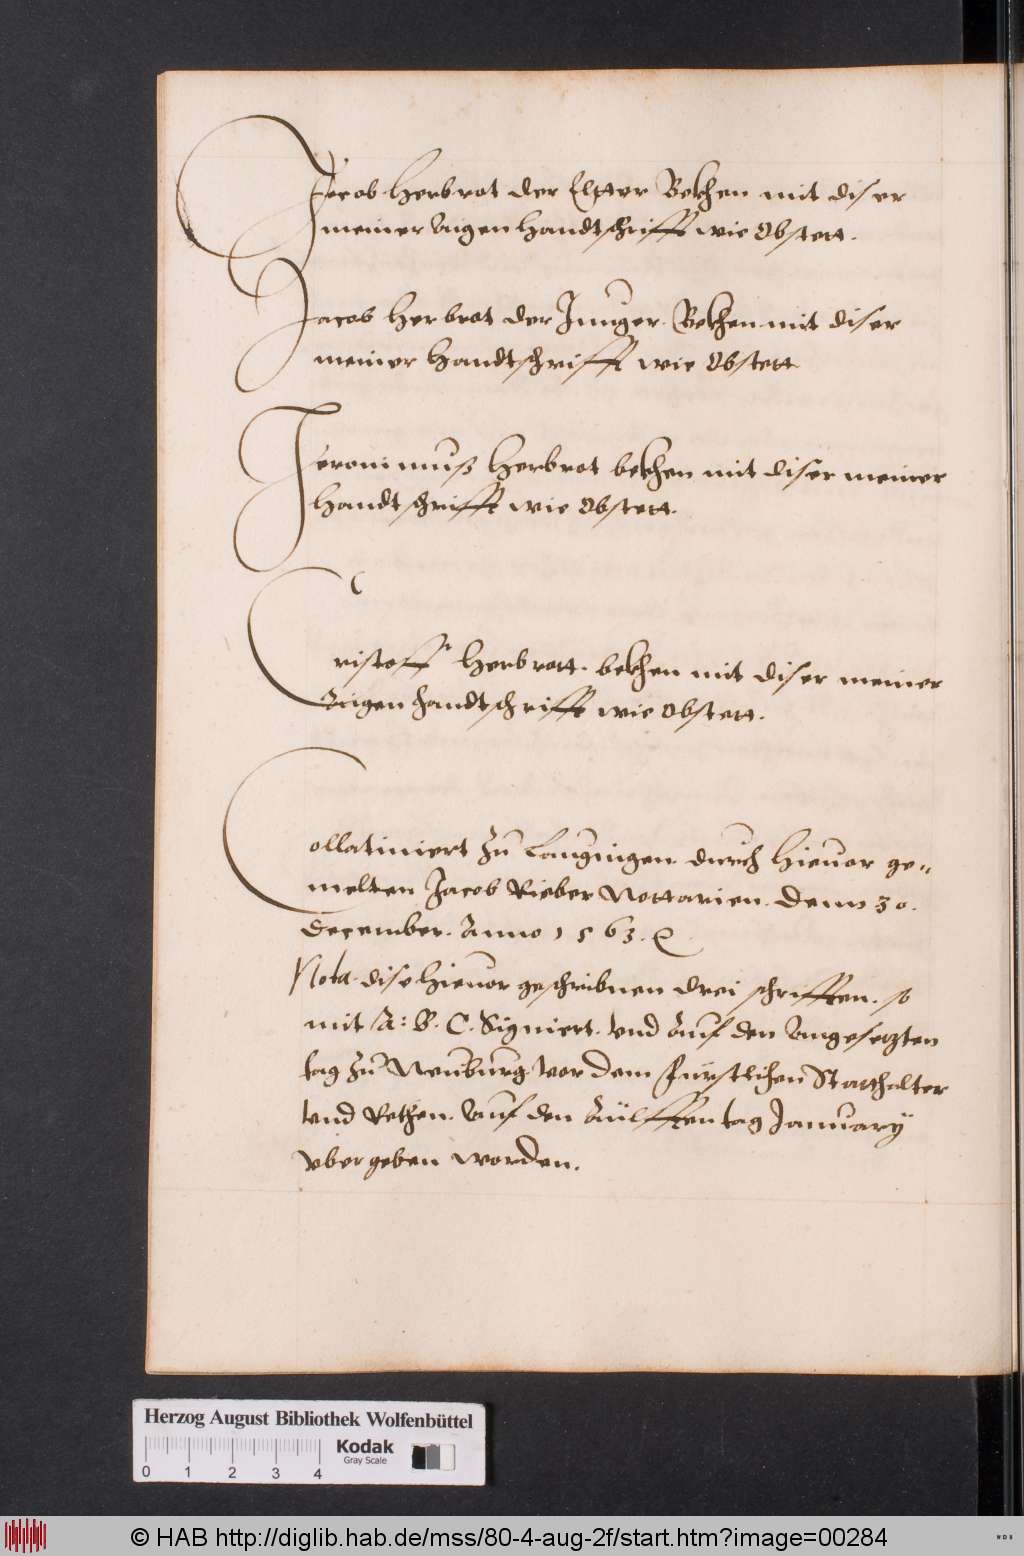 Jacob Herbrot der Elltter Bekhen mit diser
meiner Aigen Handtschrifft wie Obstett.
Jacob Herbrot der Junger Bekhen mit diser
meiner Handtschrifft wie Obstett
Jeronimmuß Herbrot bekhen mit diser meiner
Handtschrifft wie Obstett.
Cristoff Herbrott. bekhen mit diser meiner
Aigen handtschrifft wie Obstett.
Collationiert Zu Laugingen durch Hieuor ge=
melten Jacob Rieber Nottarien. Denn 30.
December. Anno 1563.
Nota. dise hieuor geschribnen drei schrifften. so
mit A: B. C. Signiert. Vnd Auf den Angesetzten
tag Zu Neuburg vor dem Fürstlichen Statthalter
Vnd Rethen. Auf den Ailfften tag January
vbergeben worden.
Herzog August Bibliothek Wolfenbüttel
Kodak
Gray Scale
0 1 2 3 4
© HAB http://diglib.hab.de/mss/80-4-aug-2f/start.htm?image=00284